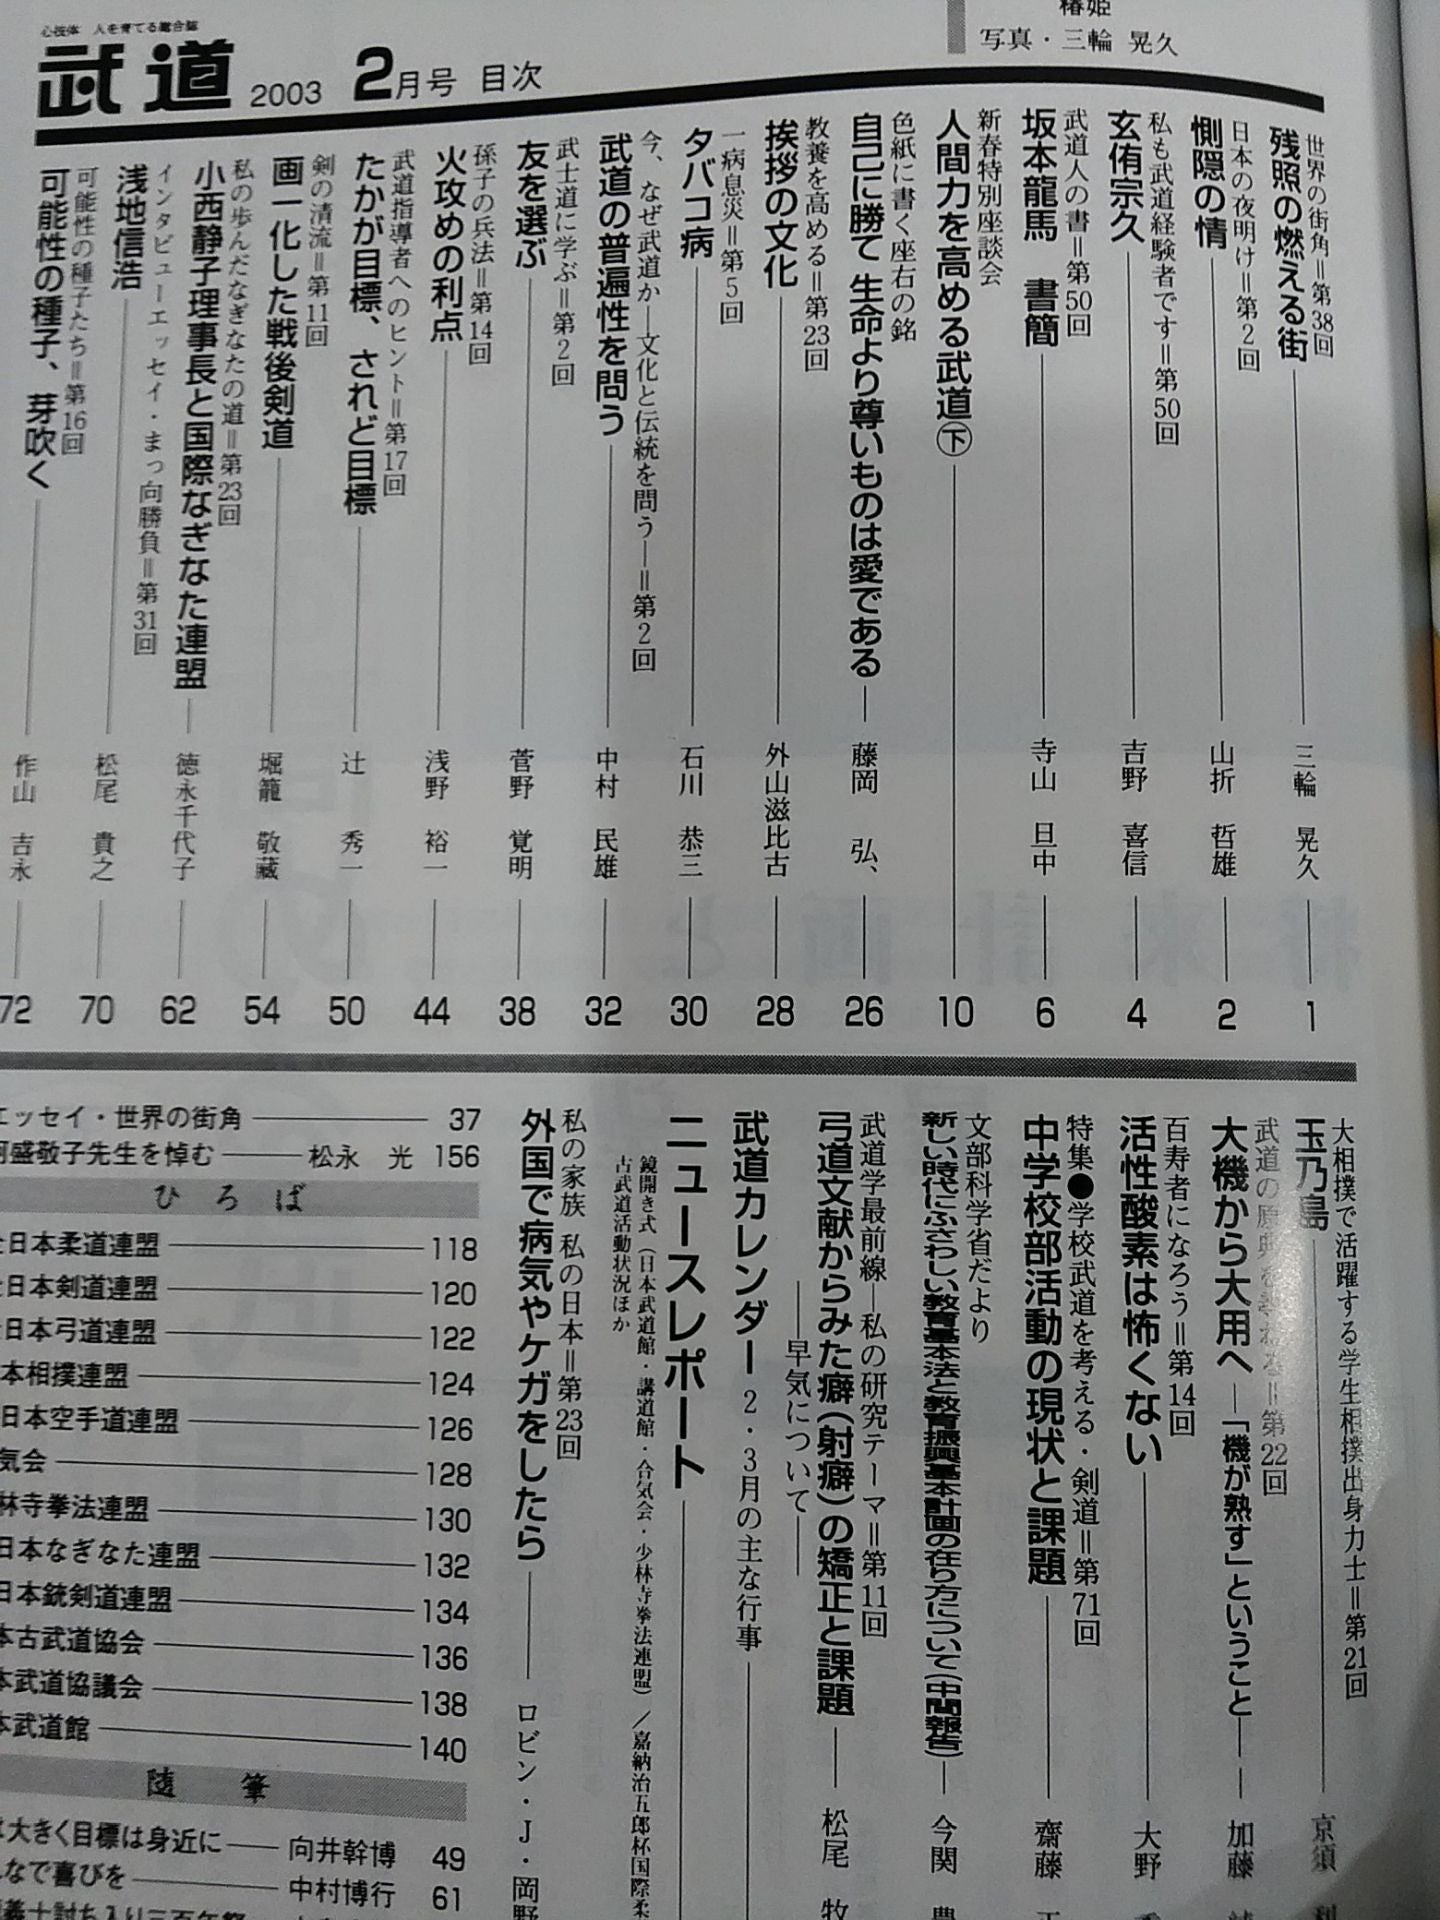 椿姫
写真・三輪 晃久
心技体 人を育てる総合誌
武道 2003 2月号 目次
世界の街角=第38回
残照の燃える街 三輪 晃久 1
日本の夜明け=第2回
惻隠の情 山折 哲雄 2
私も武道経験者です=第50回
玄侑宗久 吉野 喜信 4
武道人の書=第50回
坂本龍馬 書簡 寺山 旦中 6
新春特別座談会
人間力を高める武道㊦ 10
色紙に書く座右の銘
自己に勝て 生命より尊いものは愛である 藤岡 弘、 26
教養を高める=第23回
挨拶の文化 外山滋比古 28
一病息災=第5回
タバコ病 石川 恭三 30
今、なぜ武道か―文化と伝統を問う―=第2回
武道の普遍性を問う 中村 民雄 32
武士道に学ぶ=第2回
友を選ぶ 菅野 覚明 38
孫子の兵法=第14回
火攻めの利点 浅野 裕一 44
武道指導者へのヒント=第17回
たかが目標、されど目標 辻 秀一 50
剣の清流=第11回
画一化した戦後剣道 堀籠 敬蔵 54
私の歩んだなぎなたの道=第23回
小西静子理事長と国際なぎなた連盟 徳永千代子 62
インタビューエッセイ・まっ向勝負=第31回
浅地信浩 松尾 貴之 70
可能性の種子たち=第16回
可能性の種子、芽吹く 作山 吉永 72
大相撲で活躍する学生相撲出身力士=第21回
玉乃島 京須 利
武道の原典を尋ねる=第22回
大機から大用へ―「機が熟す」ということ 加藤
百寿者になろう=第14回
活性酸素は怖くない 大野
特集●学校武道を考える・剣道=第71回
中学校部活動の現状と課題 齋藤
文部科学省だより
新しい時代にふさわしい教育基本法と教育振興基本計画の在り方について(中間報告) 今関
武道学最前線―私の研究テーマ=第11回
弓道文献からみた癖(射癖)の矯正と課題 松尾 牧
――早気について――
武道カレンダー 2・3月の主な行事
ニュースレポート
鏡開き式(日本武道館・講道館・合気会・少林寺拳法連盟)/嘉納治五郎杯国際柔
古武道活動状況ほか
私の家族 私の日本=第23回
外国で病気やケガをしたら ロビン・J・岡野
エッセイ・世界の街角 37
盛敬子先生を悼む 松永 光 156
ひろば
日本柔道連盟 118
日本剣道連盟 120
日本弓道連盟 122
本相撲連盟 124
日本空手道連盟 126
気会 128
林寺拳法連盟 130
日本なぎなた連盟 132
日本銃剣道連盟 134
本古武道協会 136
本武道協議会 138
本武道館 140
随筆
大きく目標は身近に 向井幹博 49
なで喜びを 中村博行 61
義士討ち入り三百年祭